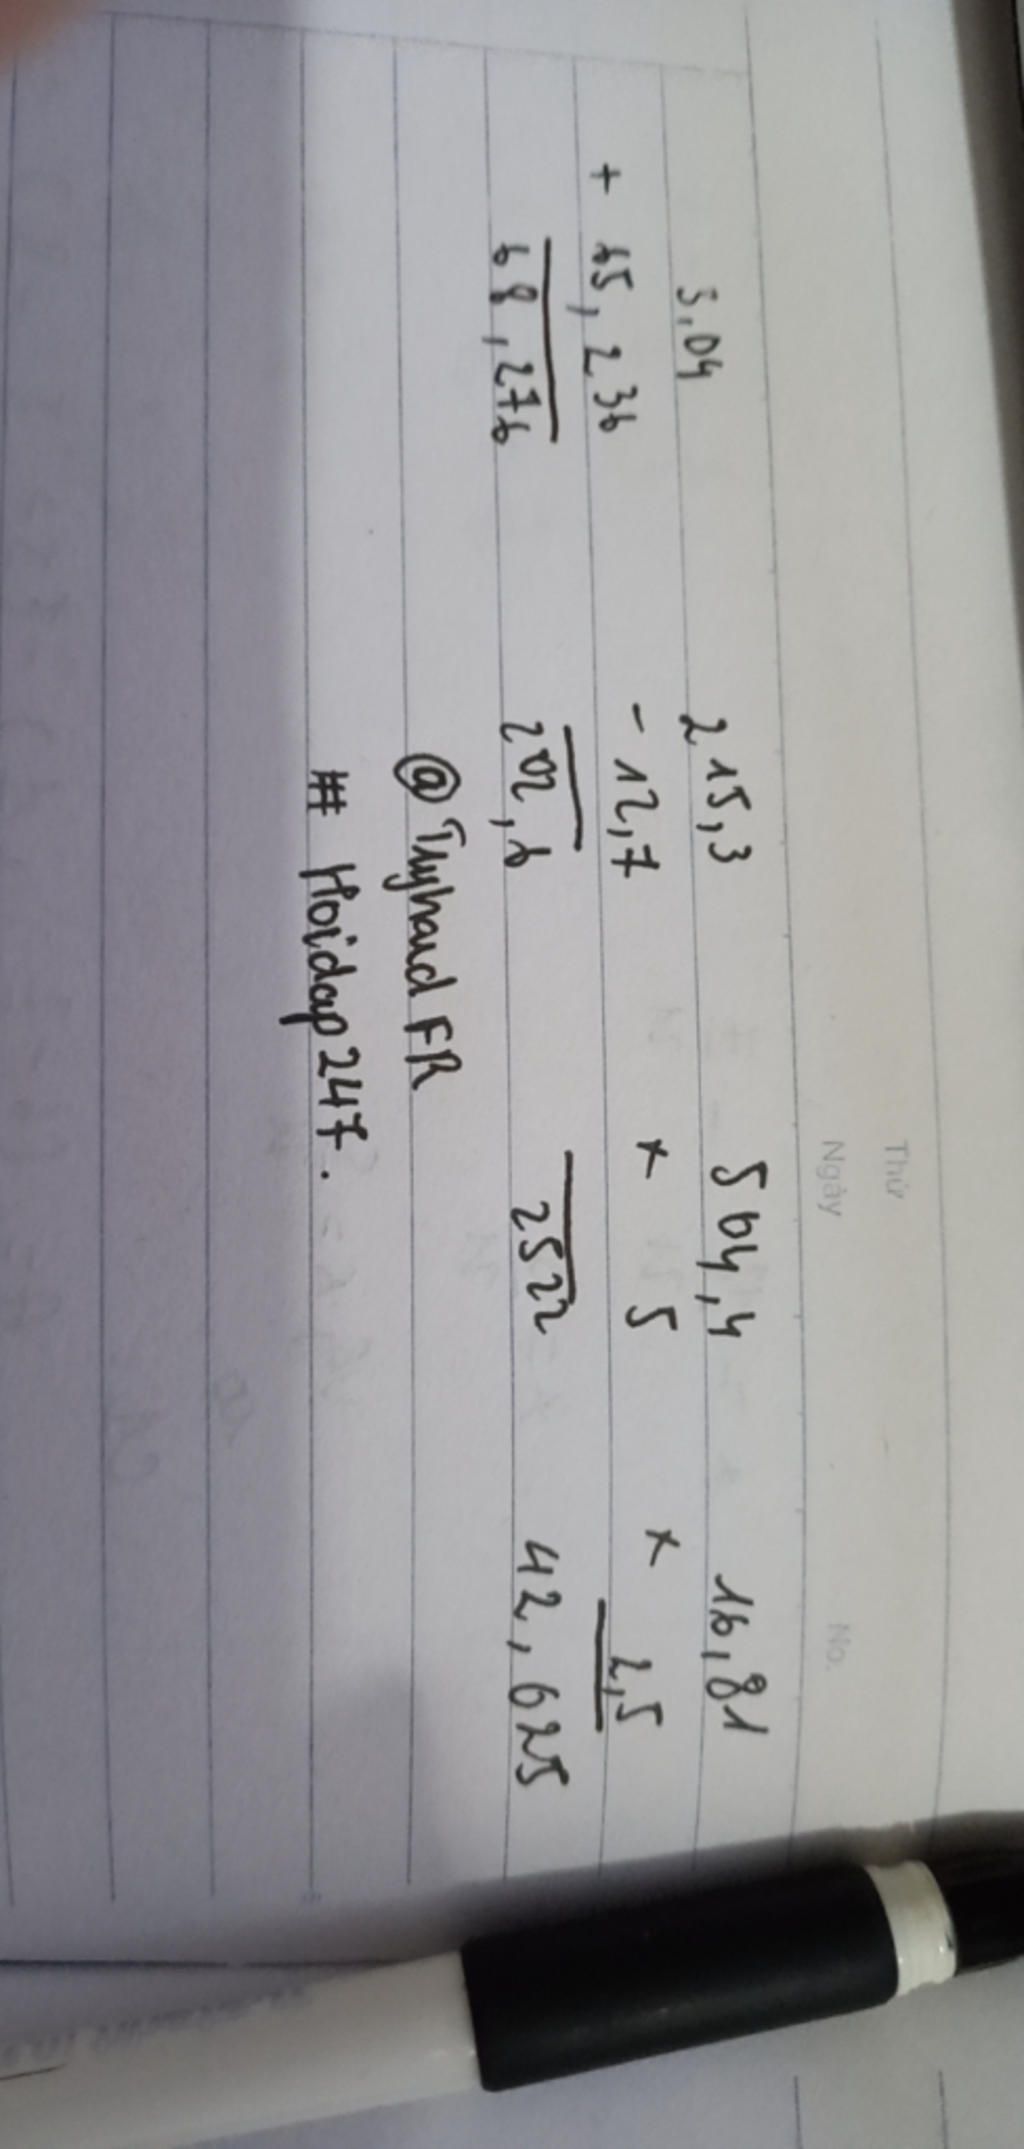 Thứ
Ngày No.
3,04 215,3 504,4 16,81
+ 65,236 - 12,7 × 5 × 2,5
68,276 202,6 2522 42,025
@TryhardFR
# Hoidap247.